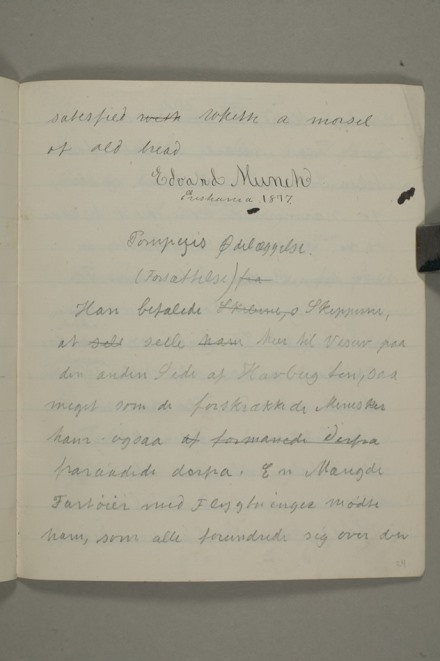 satisfied with a morsel
of old bread
Edvard Munch
1877
Pompejis Ødelæggelse.
(Forsættelse) fra
Han befalede Skibenes Skippere,
at sels selle ham hen til Vesuv paa
den anden Side af Havbugten, saa
meget som de forskrækkede Mennesker
ham ogsaa af formanede derfra
fraraadede derfra. En Mængde
Fartøier med Flygtninger mødte
ham, som alle forundrede sig over den